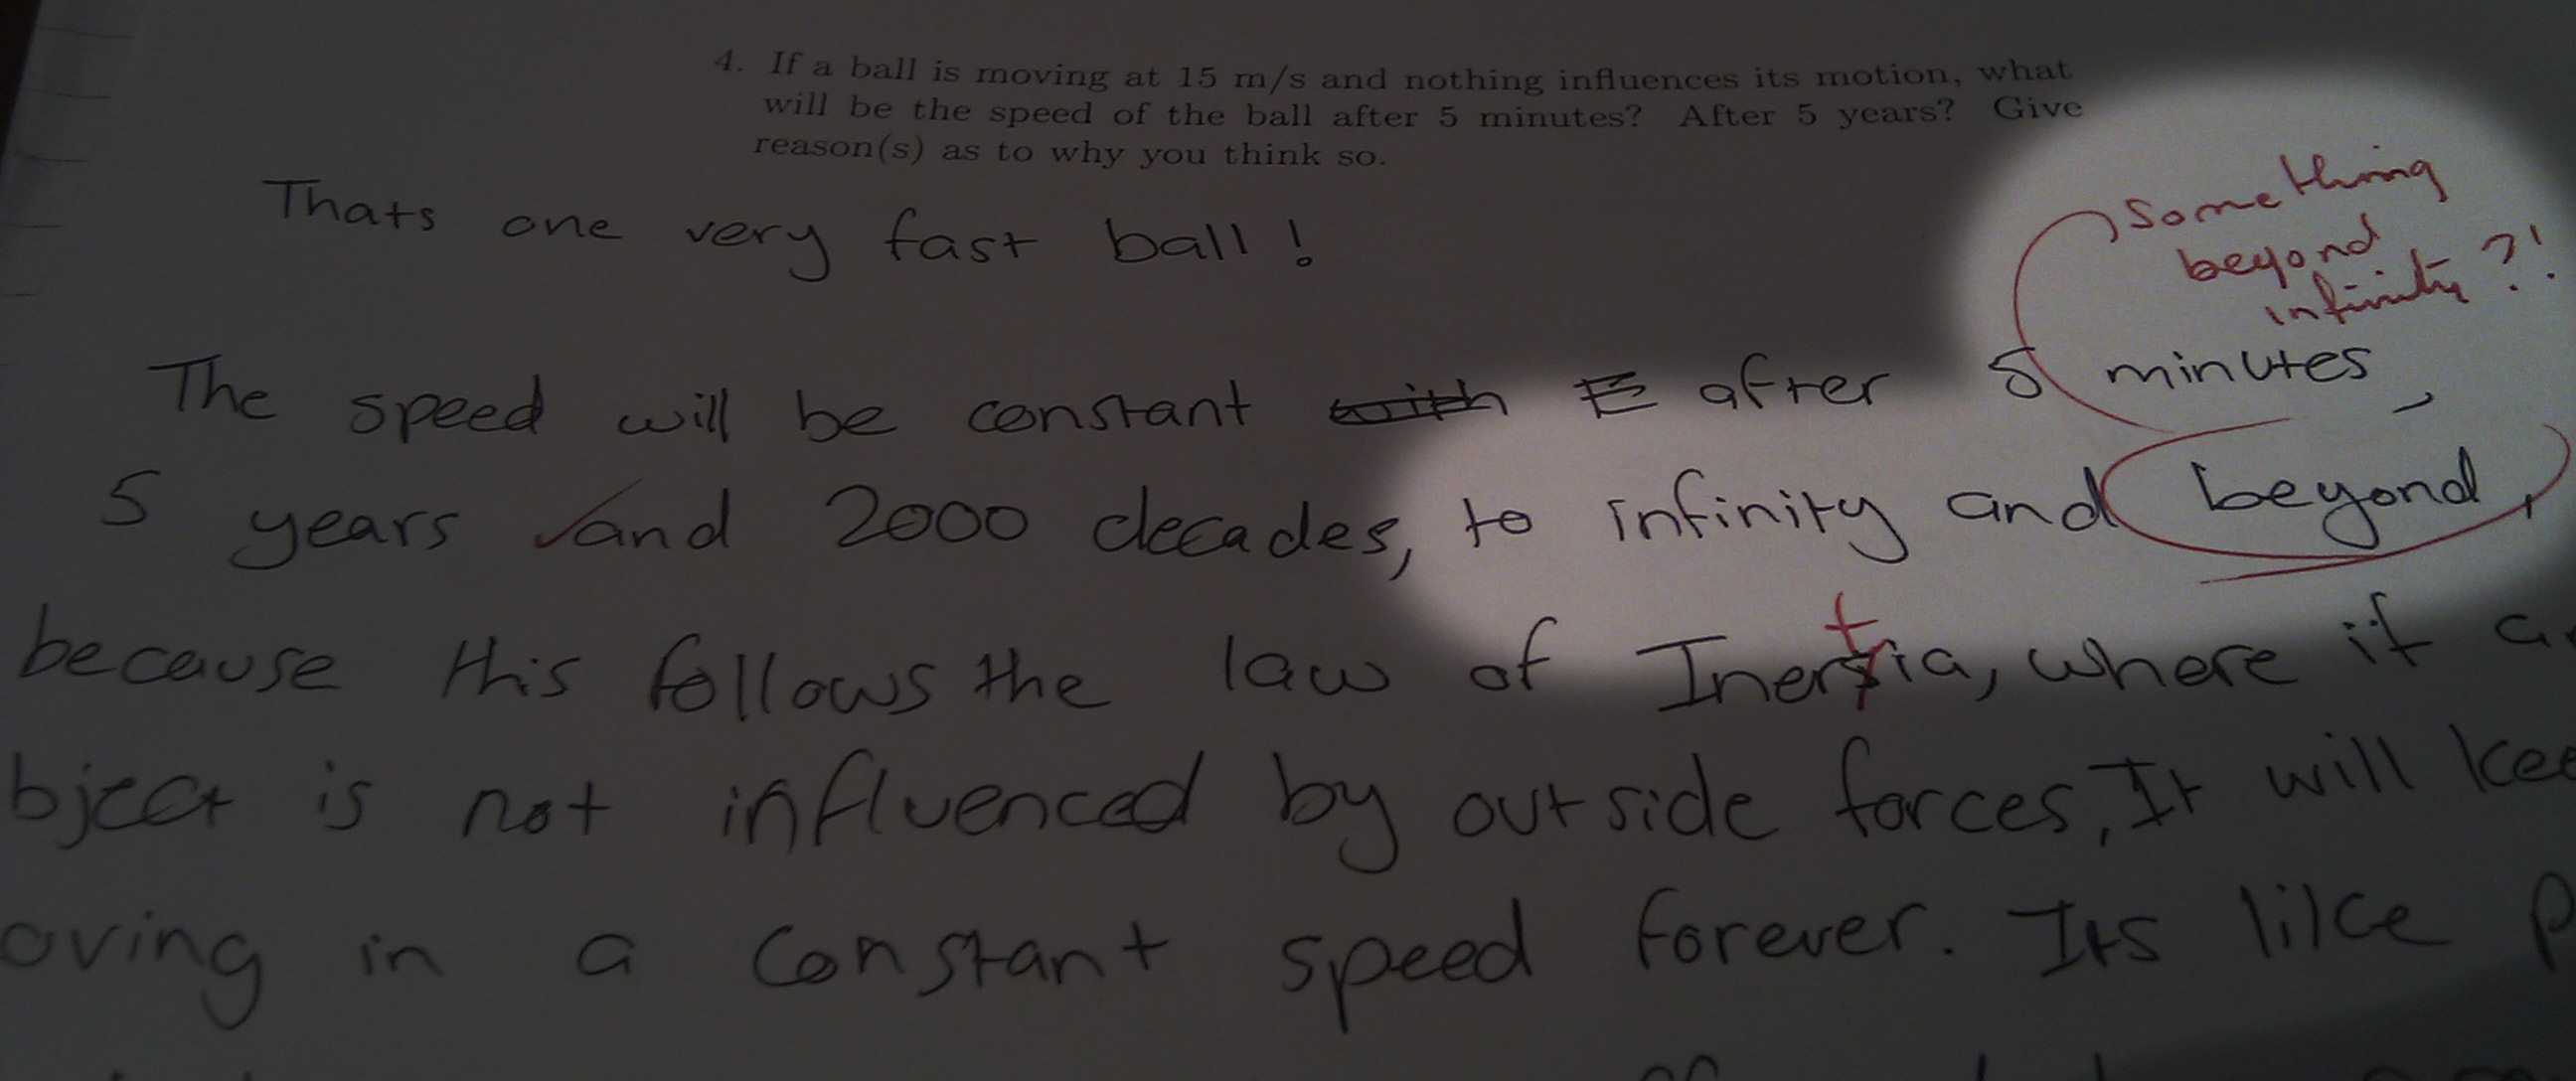 4. If a ball is moving at 15 m/s and nothing influences its motion, what
will be the speed of the ball after 5 minutes? After 5 years? Give
reason(s) as to why you think so.
Something
beyond
infinity?!
Thats one very fast ball!
The speed will be constant with E after 5 minutes,
5 years and 2000 decades, to infinity and beyond,
t
because this follows the law of Inersia, where if a
bject is not influenced by outside forces, It will kee
oving in a constant speed forever. Its like p